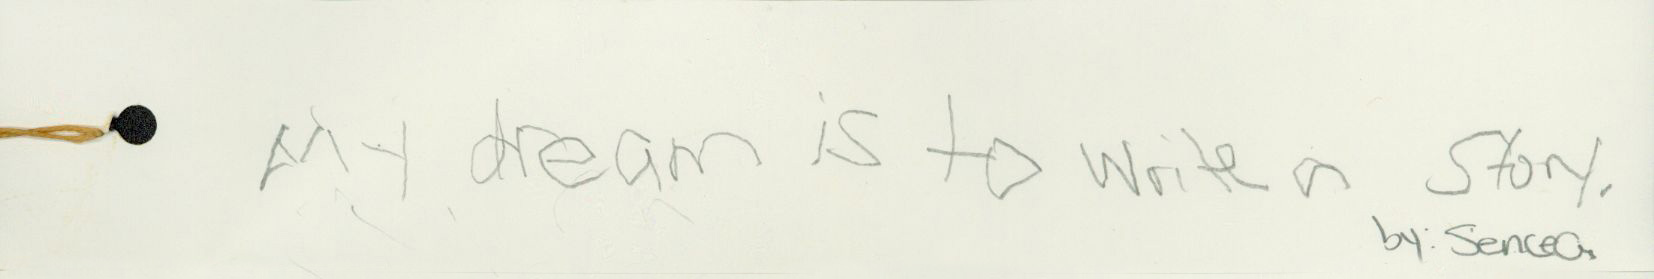 My dream is to write a Story.
by: Seneca